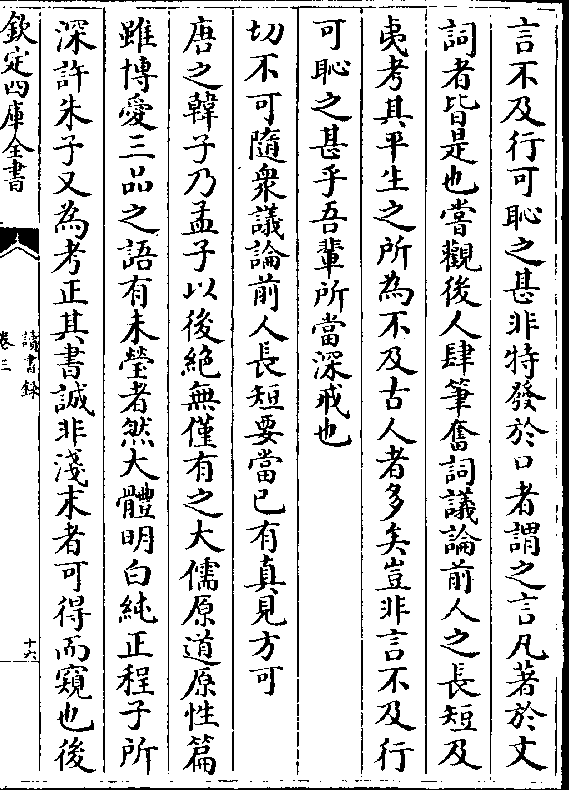 言不及行可恥之甚非特發於口者謂之言凡著於文
詞者皆是也嘗觀後人肆筆奮詞議論前人之長短及
夷考其平生之所為不及古人者多矣豈非言不及行
可恥之甚乎吾輩所當深戒也
切不可隨衆議論前人長短要當已有真見方可
唐之韓子乃孟子以後絶無僅有之大儒原道原性篇
雖博愛三品之語有未瑩者然大體明白純正程子所
深許朱子又為考正其書誠非淺末者可得而窺也後
欽定四庫全書
讀書録
卷三
十六